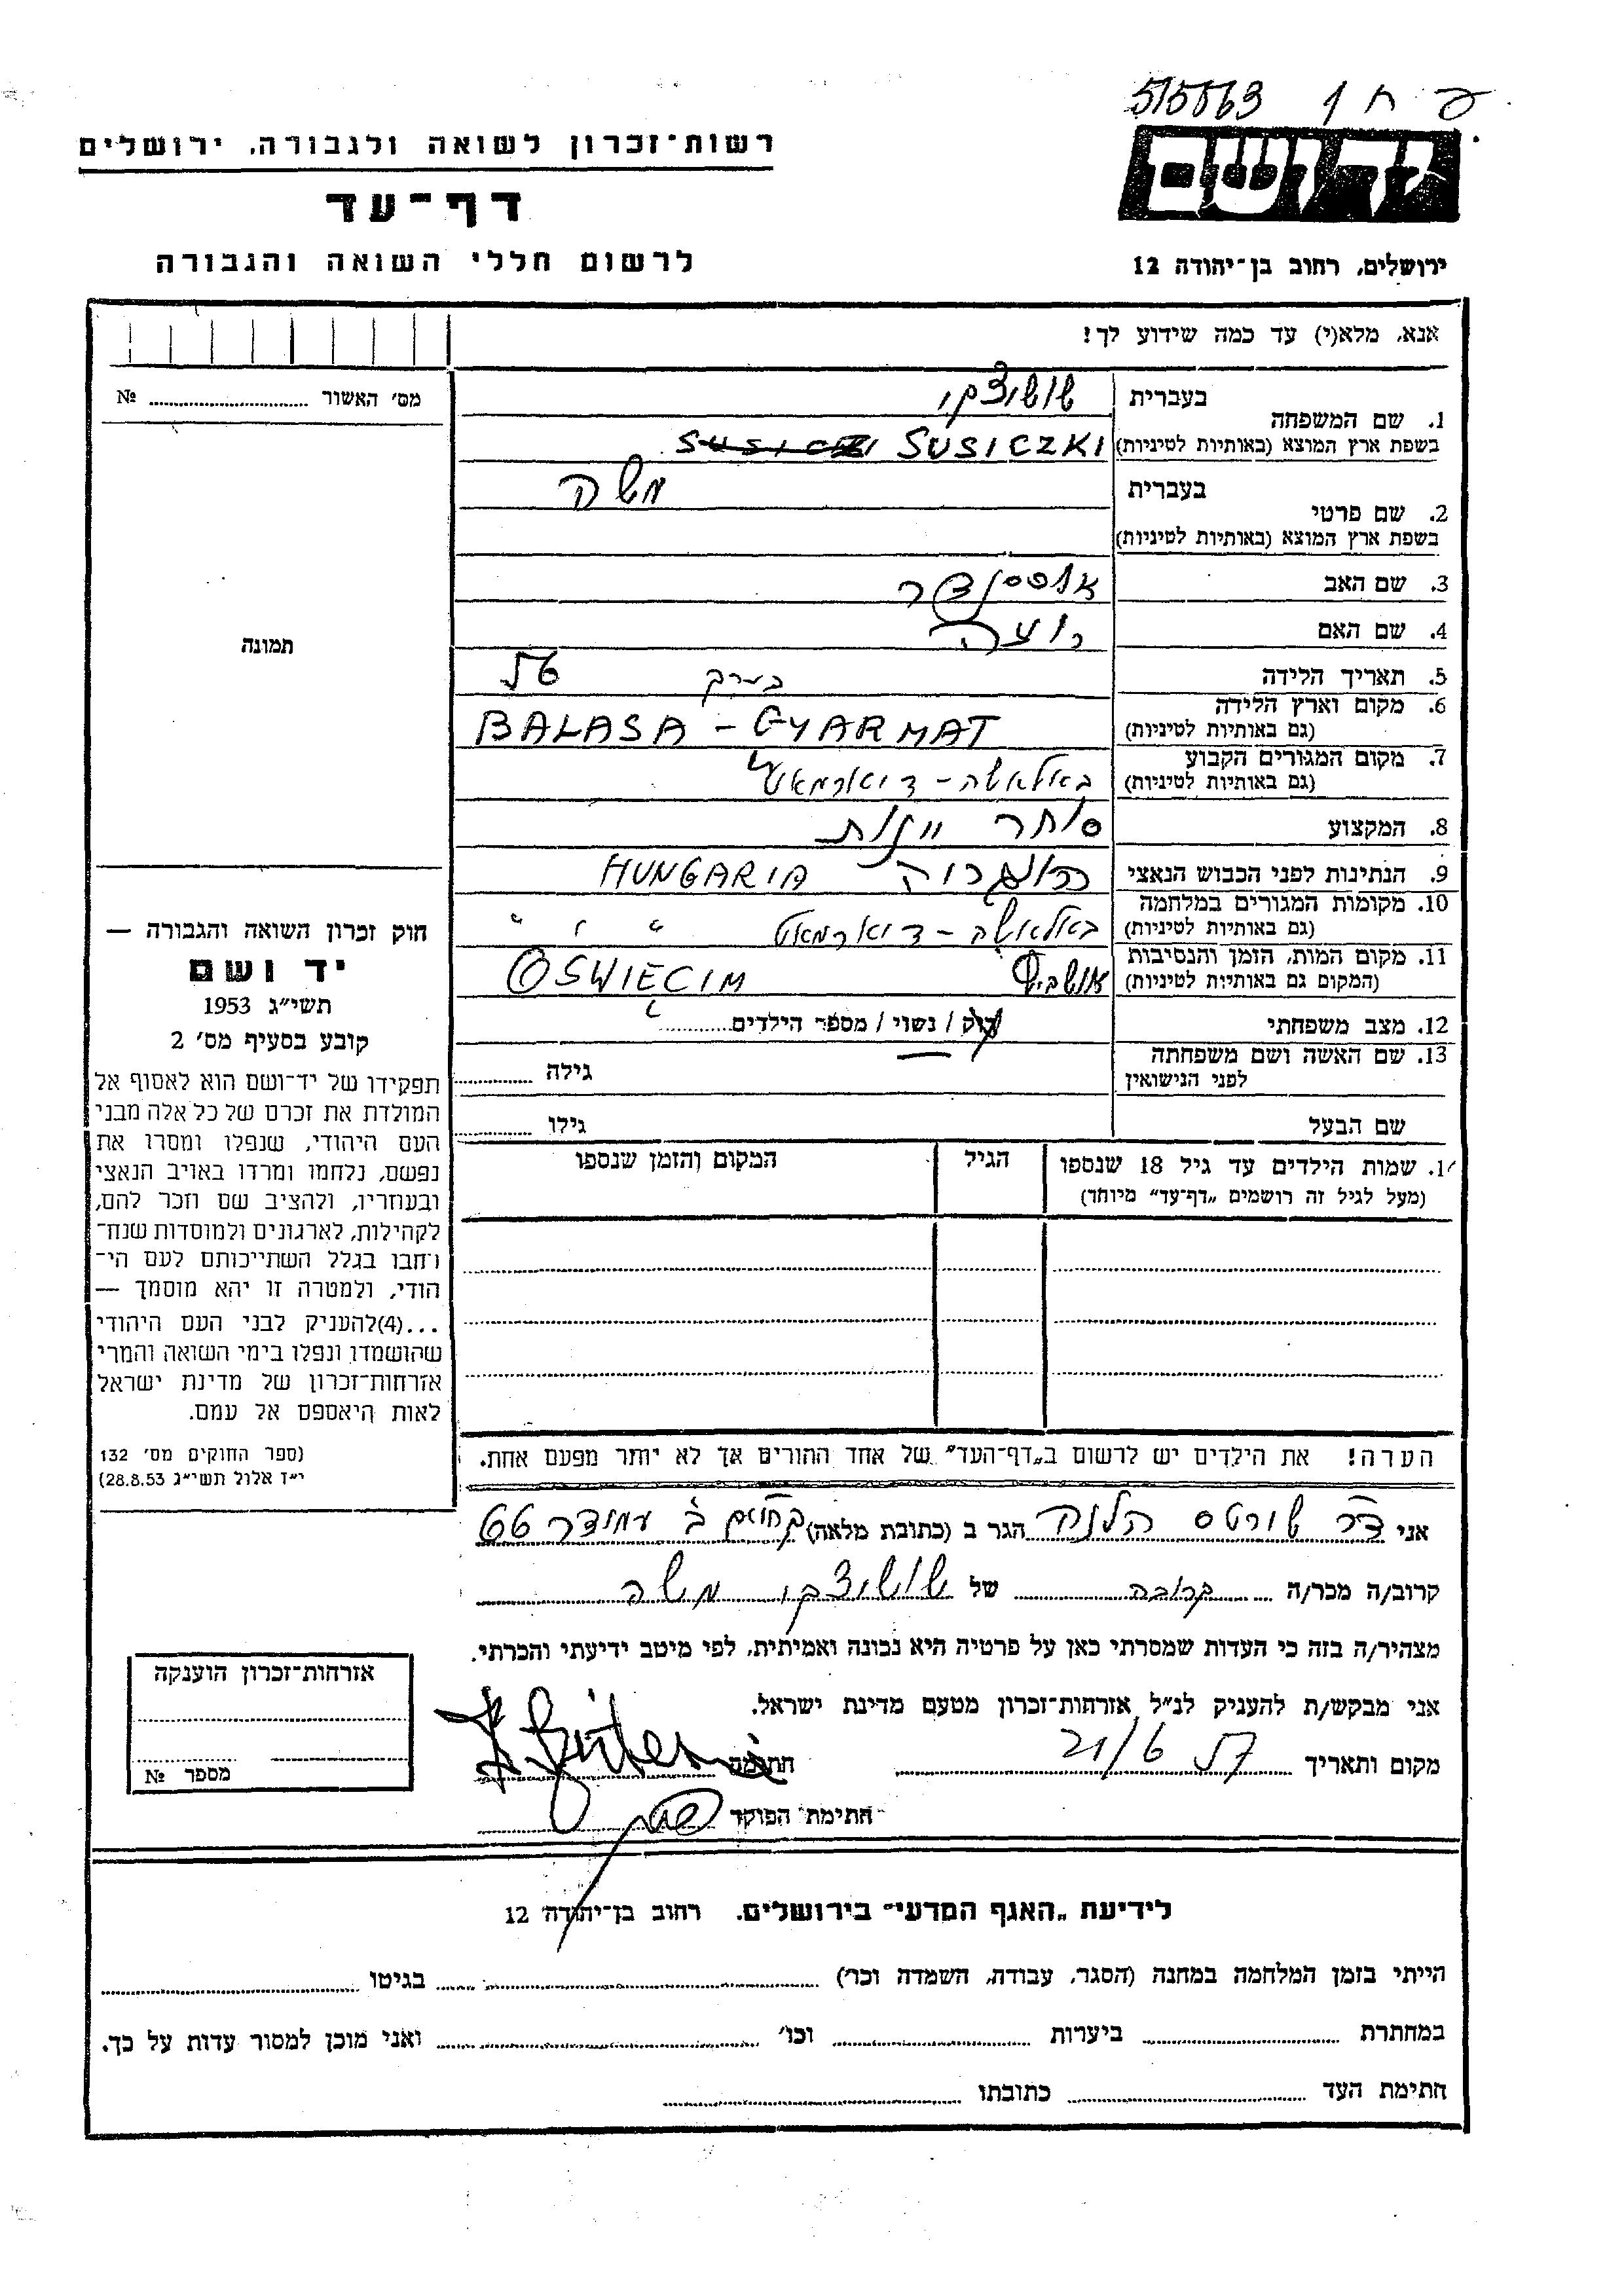 515563
רשות־זכרון לשואה ולגבורה, ירושלים
דף־עד
לרשום חללי השואה והגבורה
ידושם
ירושלים, רחוב בן־יהודה 12
אנא, מלא(י) עד כמה שידוע לך!
מס׳ האשור № 
1. שם המשפחה
בעברית שושיצקי
בשפת ארץ המוצא (באותיות לטיניות) SUSICZKI
2. שם פרטי
בעברית משה
בשפת ארץ המוצא (באותיות לטיניות)
3. שם האב
4. שם האם רוזה
5. תאריך הלידה בערך
6. מקום וארץ הלידה (גם באותיות לטיניות) BALASA - GYARMAT
7. מקום המגורים הקבוע (גם באותיות לטיניות) באלאשה - דיארמאט
8. המקצוע סוחר יינות
9. הנתינות לפני הכבוש הנאצי הונגריה HUNGARIA
10. מקומות המגורים במלחמה (גם באותיות לטיניות) באלאשה - דיארמאט " " "
11. מקום המות, הזמן והנסיבות (המקום גם באותיות לטיניות) אושביץ OSWIECIM
12. מצב משפחתי רוק / נשוי / מספר הילדים
13. שם האשה ושם משפחתה לפני הנישואין גילה
שם הבעל גילו
תמונה
חוק זכרון השואה והגבורה —
יד ושם
תשי״ג 1953
קובע בסעיף מס׳ 2
תפקידו של יד־ושם הוא לאסוף אל
המולדת את זכרם של כל אלה מבני
העם היהודי, שנפלו ומסרו את
נפשם, נלחמו ומרדו באויב הנאצי
ובעוזריו, ולהציב שם וזכר להם,
לקהילות, לארגונים ולמוסדות שנח־
רחבו בגלל השתייכותם לעם הי־
הודי, ולמטרה זו יהא מוסמך —
...(4)להעניק לבני העם היהודי
שהושמדו ונפלו בימי השואה והמרי
אזרחות־זכרון של מדינת ישראל
לאות היאספם אל עמם.
(ספר החוקים מס׳ 132
י״ז אלול תשי״ג 28.8.53)
14. שמות הילדים עד גיל 18 שנספו
(מעל לגיל זה רושמים „דף־עד״ מיוחד)
הגיל
המקום והזמן שנספו
הערה! את הילדים יש לרשום ב„דף־העד״ של אחד ההורים אך לא יותר מפעם אחת.
אני דר שורטס הלנה הגר ב (כתובת מלאה)
קרוב/ה מכר/ה קרובה של שושיצקי משה
מצהיר/ה בזה כי העדות שמסרתי כאן על פרטיה היא נכונה ואמיתית, לפי מיטב ידיעתי והכרתי.
אני מבקש/ת להעניק לנ״ל אזרחות־זכרון מטעם מדינת ישראל.
מקום ותאריך 21/6 חתימה
חתימת הפוקד
אזרחות־זכרון הוענקה
מספר №
לידיעת „האגף המדעי״ בירושלים, רחוב בן־יהודה 12
הייתי בזמן המלחמה במחנה (הסגר, עבודה, השמדה וכו׳) בגיטו
במחתרת ביערות וכו׳ ואני מוכן למסור עדות על כך.
חתימת העד כתובתו